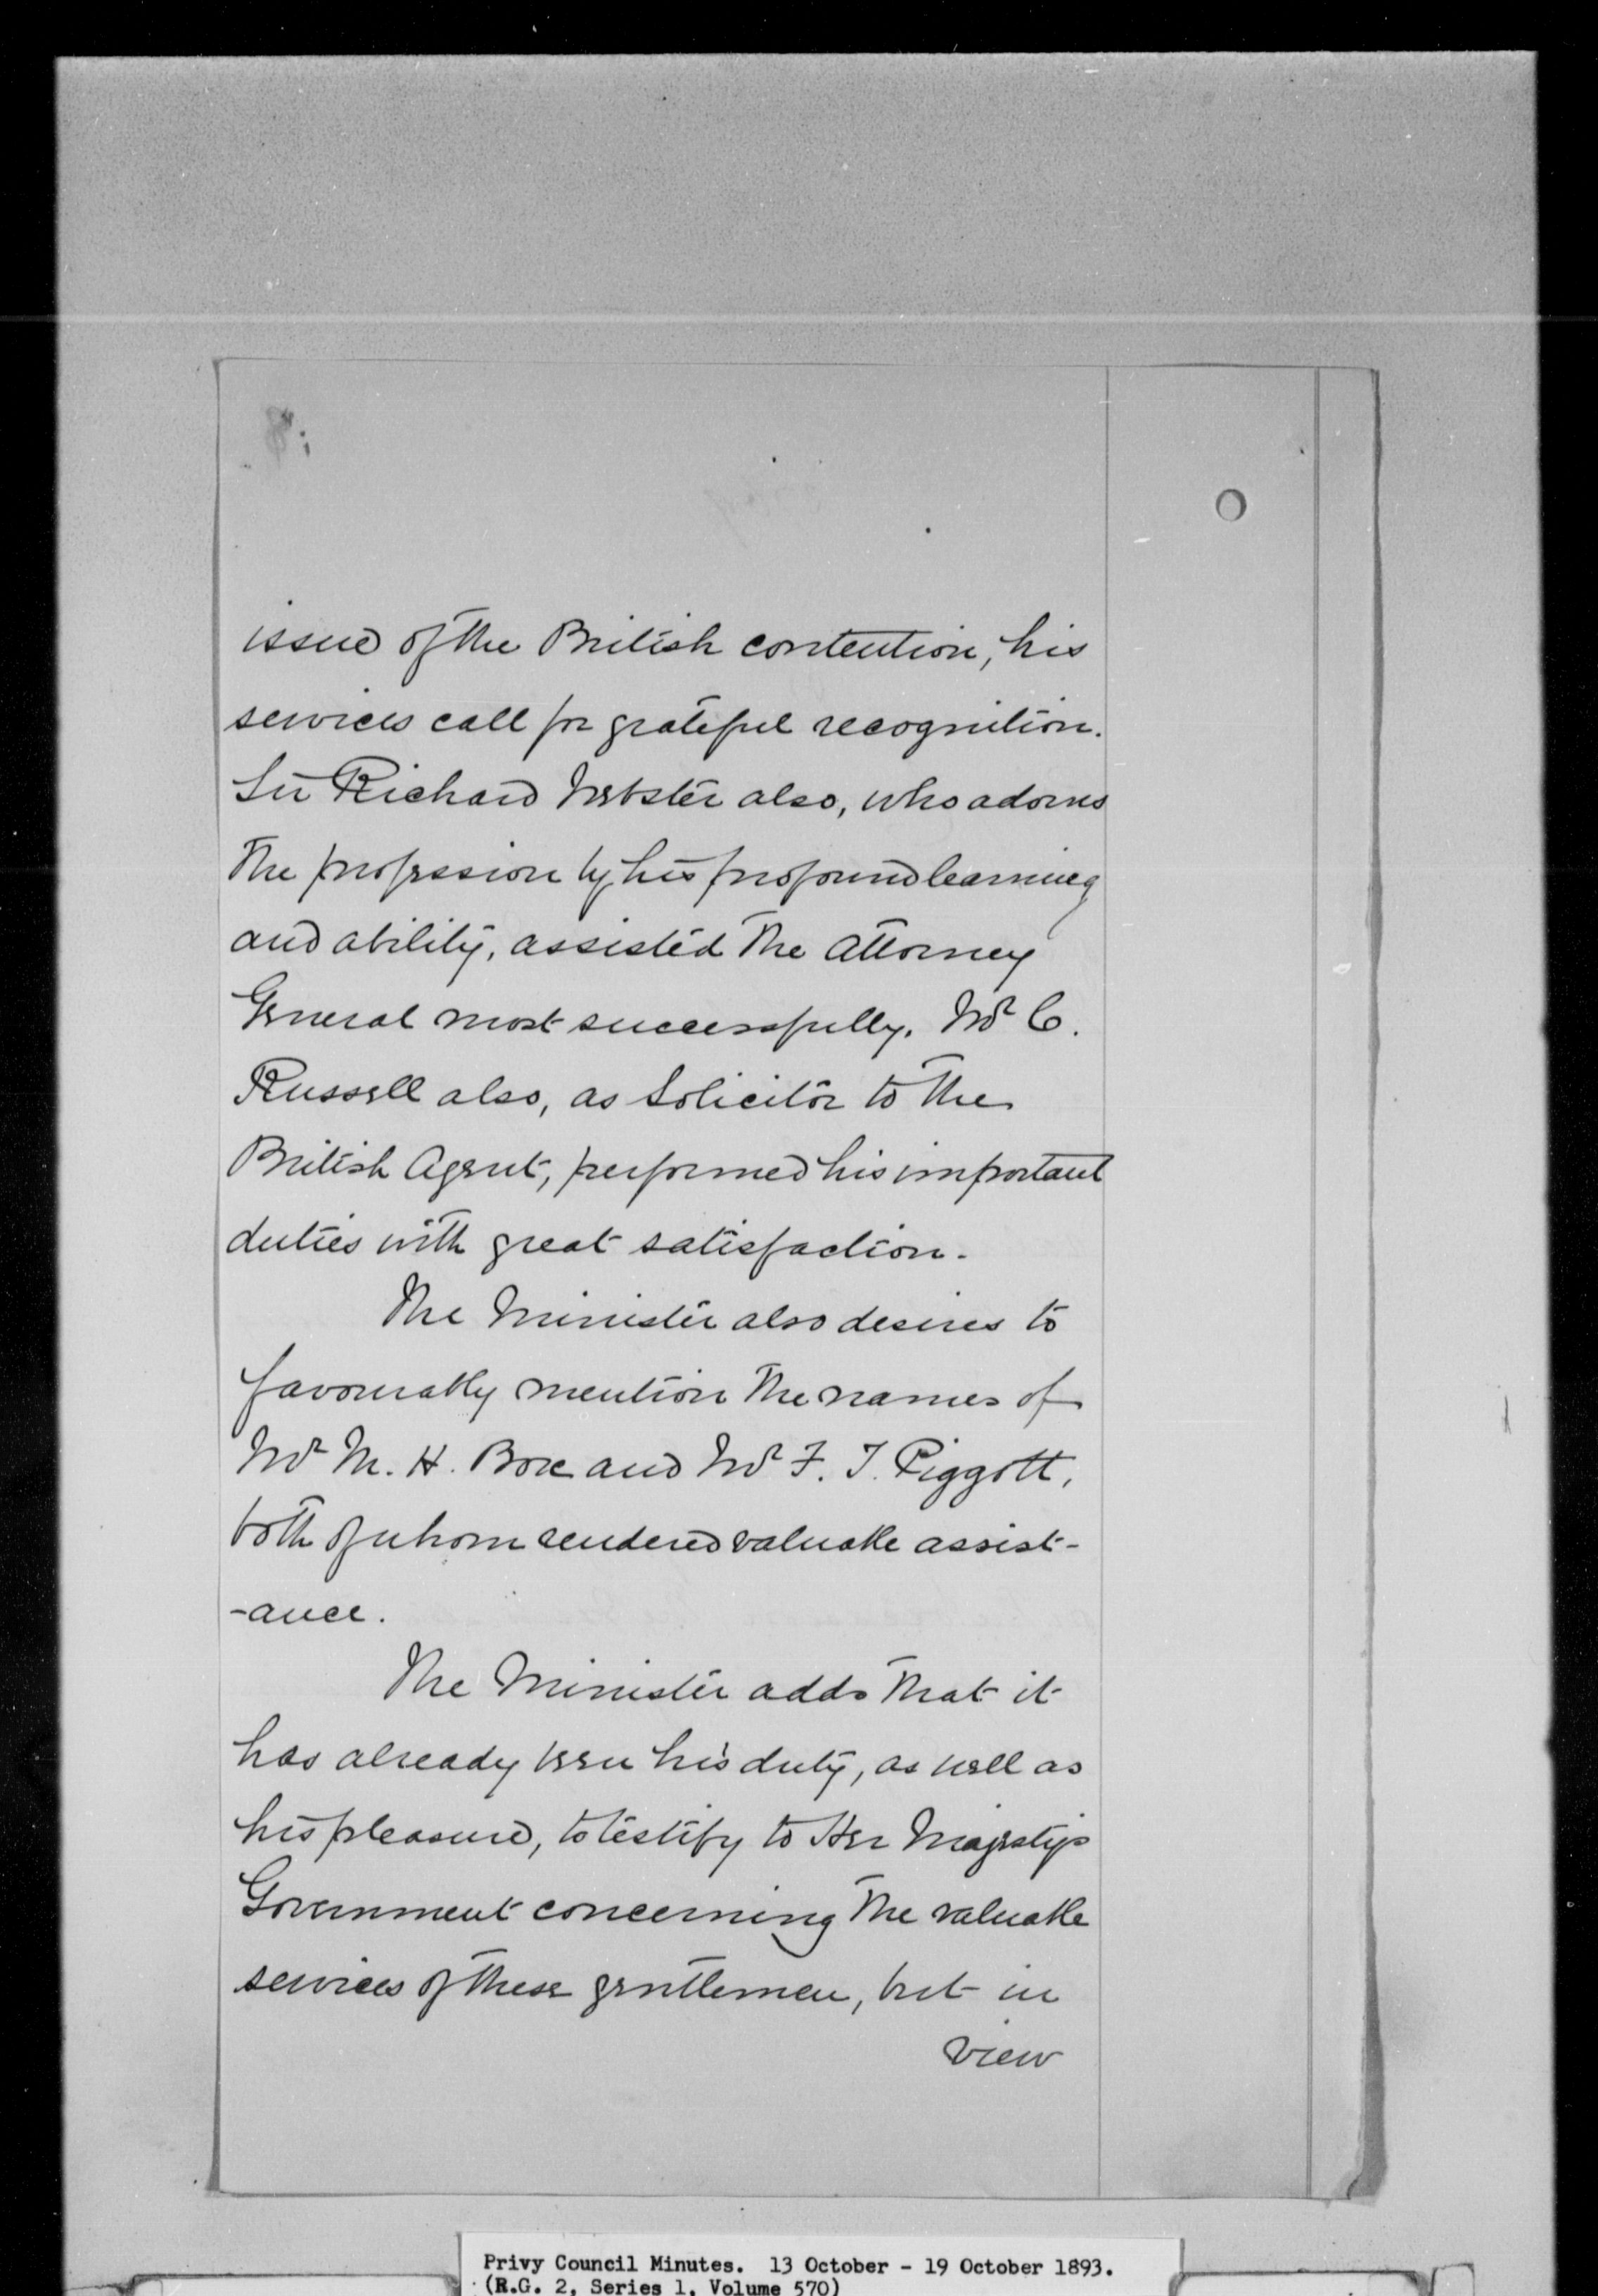 issue of the British contention, his
services call for grateful recognition.
Sir Richard Webster also, who adorns
the profession by his profound learning
and ability, assisted the Attorney
General most successfully. Mr C.
Russell also, as Solicitor to the
British Agent, performed his important
duties with great satisfaction.
The Minister also desires to
favourably mention the names of
Mr M. H. Box and Mr F. T. Piggott,
both of whom rendered valuable assist-
-ance.
The Minister adds that it
has already been his duty, as well as
his pleasure, to testify to Her Majesty's
Government concerning the valuable
services of these gentlemen, but in
view
Privy Council Minutes. 13 October - 19 October 1893.
(R.G. 2, Series 1, Volume 570)